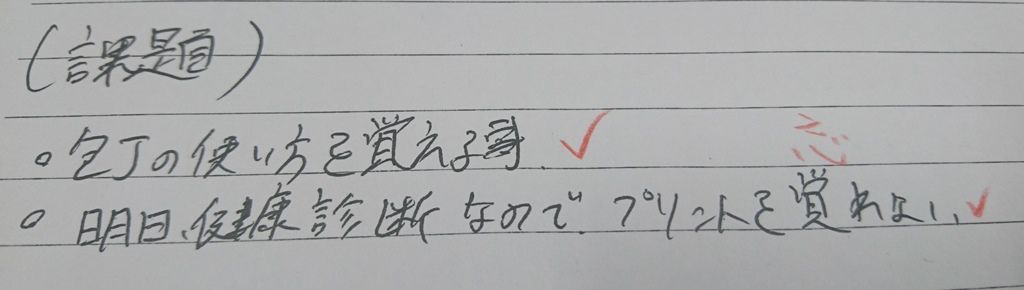 (課題)
。包丁の使い方を覚える事.
忘
。明日、健康診断なので、プリントを覚れない、